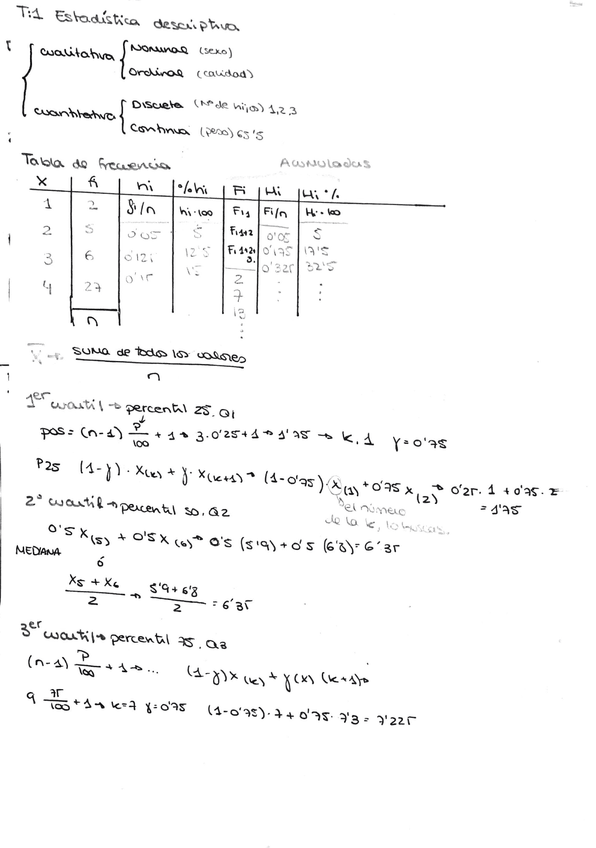 T:1 Estadística descriptiva
cualitativa Nominal (sexo)
Ordinal (calidad)
cuantitativa Discreta (Nº de hijos) 1,2,3
Continua (peso) 63'5
Tabla de frecuencia Acumuladas
X fi hi %hi Fi Hi Hi%
1 2 fi/n hi·100 F1 Fi/n Hi·100
2 5 0'05 5 F1+2 0'05 5
3 6 0'125 12'5 F1+2+3. 0'175 17'5
4 27 0'15 15 2 0'325 32'5
7
n 13
X̄ → suma de todos los valores
n
1er cuartil → percentil 25. Q1
pos = (n-1) P/100 + 1 → 3·0'25+1 → 1'75 → k.1 γ=0'75
P25 (1-γ)·X(k) + γ·X(k+1) → (1-0'75)·X(1) + 0'75 X(2) → 0'25·1 + 0'75·2
= 1'75
el número
de la k, lo buscas.
2º cuartil → percentil 50. Q2
0'5 X(5) + 0'5 X(6) → 0'5 (5'9) + 0'5 (6'8) = 6'35
MEDIANA ó
X5 + X6 / 2 → 5'9 + 6'8 / 2 = 6'35
3er cuartil → percentil 75. Q3
(n-1) P/100 + 1 → ... (1-γ) X(k) + γ(x) (k+1) →
9 75/100 + 1 → k=7 γ=0'75 (1-0'75)·7 + 0'75·7'3 = 7'225